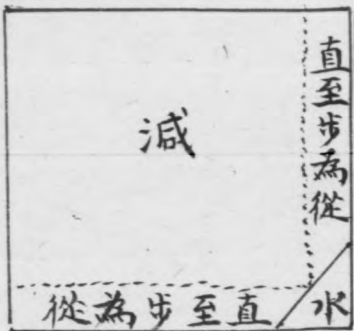 減
直至步為從
從為步至直
水